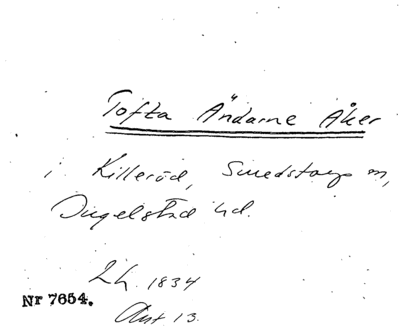 Tofta Ändarne Åker
i Killeröd, Smedstorps sn,
Ingelstad hd.
Lh. 1834
Nr 7654.
Akt 13.